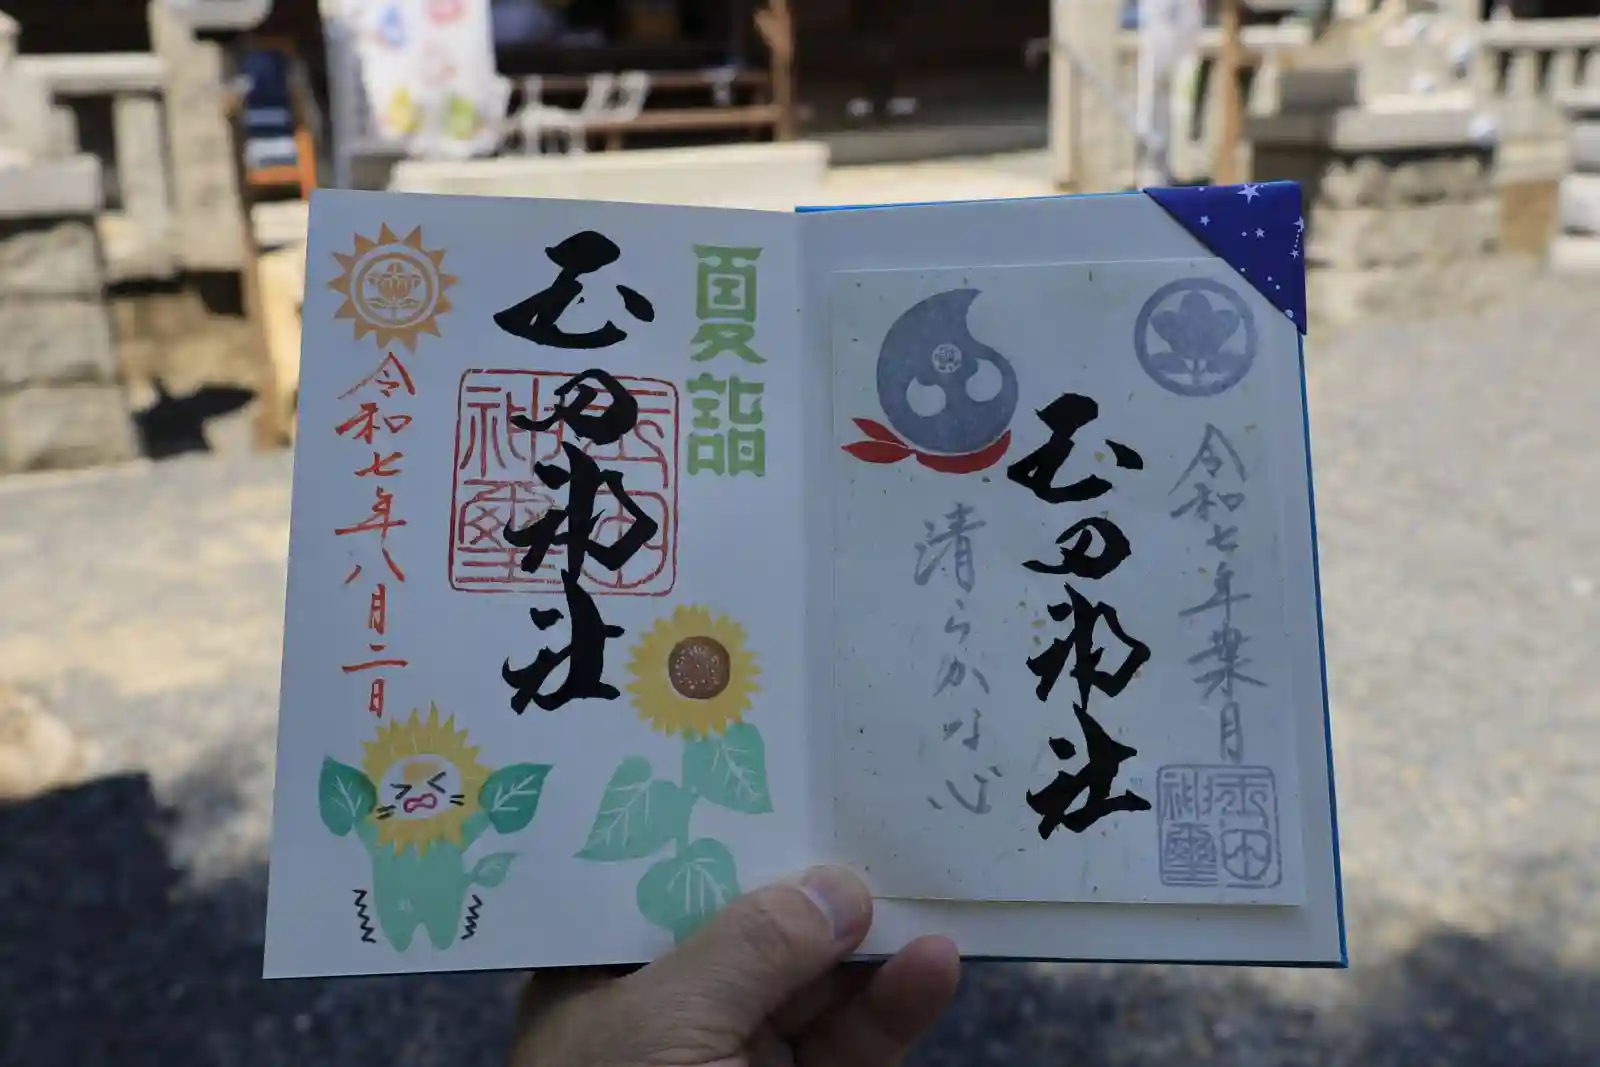 夏詣
玉田神社
玉田
神璽
令和七年八月二日
令和七年葉月
玉田神社
清らかな心
玉田
神璽